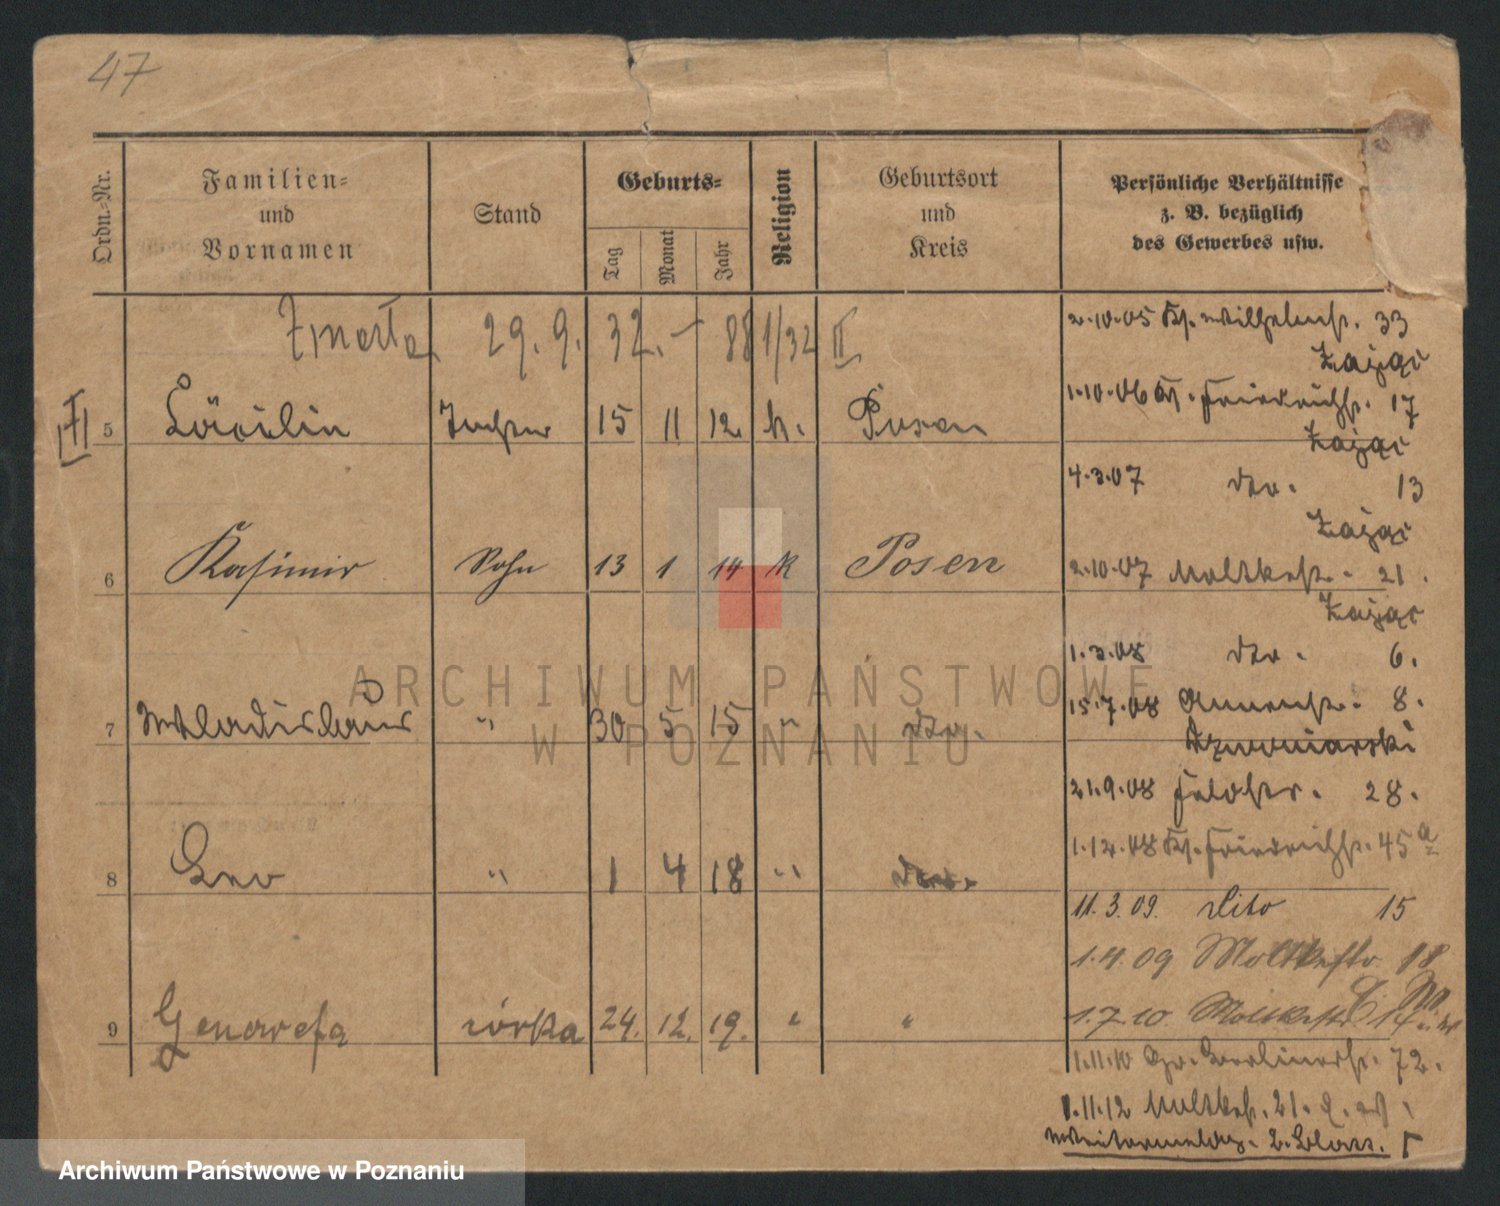 47
Ordn.-Nr.
Familien-
und
Vornamen
Stand
Geburts-
Tag
Monat
Jahr
Religion
Geburtsort
und
Kreis
Persönliche Verhältnisse
z. B. bezüglich
des Gewerbes usw.
Zmarła 29.9.32. - 88 1/32 II
5 Cäcilie Tochter 15 11 12. k. Posen
6 Kasimir Sohn 13 1 14 k Posen
7 Wladislaus " 30 5 15 " dto.
8 Leo " 1 4 18 " dto.
9 Genowefa córka 24. 12. 19. " "
2.10.05 Kl. Wilhelmst. 33
Zając
1.10.06 Kl. Friedrichst. 17
Zając
4.3.07 dto. 13
Zając
2.10.07 Moltkestr. 21.
Zając
1.3.08 dto. 6.
15.7.08 8.
21.9.08 28.
1.12.08 Kl. Friedrichst. 45a
11.3.09. dito 15
1.4.09 Moltkestr 18
1.7.10 Moltkestr
1.11.10 Gr. Berlinerst. 72.
1.11.12 Moltkest. 21.
ARCHIWUM PAŃSTWOWE
W POZNANIU
Archiwum Państwowe w Poznaniu